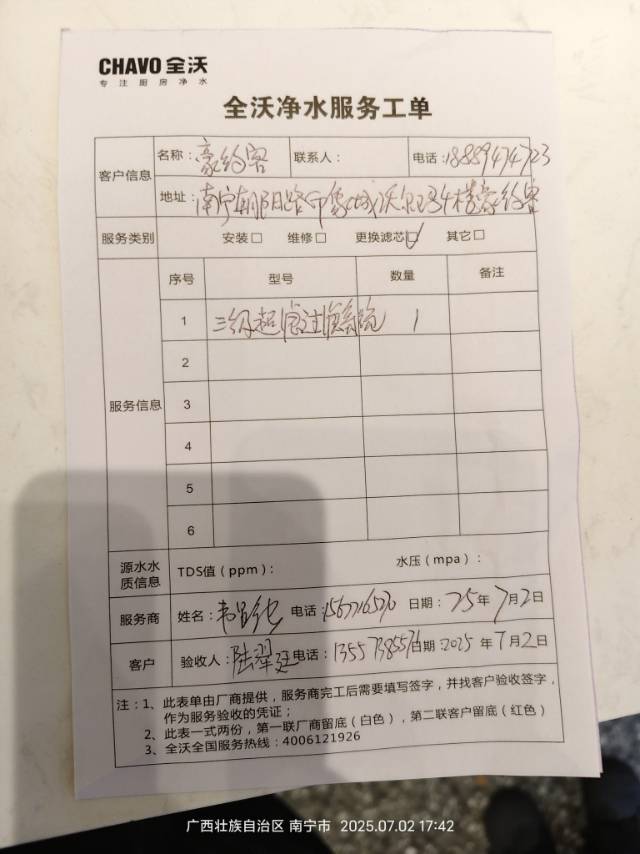 CHAVO 全沃
专注厨房净水
全沃净水服务工单
客户信息
名称：豪约客 联系人： 电话：18889474723
地址：南宁朝阳路印象城沃尔玛4楼豪约客
服务类别 安装□ 维修□ 更换滤芯☑ 其它□
服务信息
序号 型号 数量 备注
1 三级超滤过滤系统 1
2
3
4
5
6
源水水质信息 TDS值（ppm）： 水压（mpa）：
服务商 姓名：韦 电话： 日期：25年7月2日
客户 验收人：陆 电话：13557385576 日期：2025年7月2日
注：1、此表单由厂商提供，服务商完工后需要填写签字，并找客户验收签字，
作为服务验收的凭证；
2、此表一式两份，第一联厂商留底（白色），第二联客户留底（红色）
3、全沃全国服务热线：4006121926
广西壮族自治区 南宁市 2025.07.02 17:42